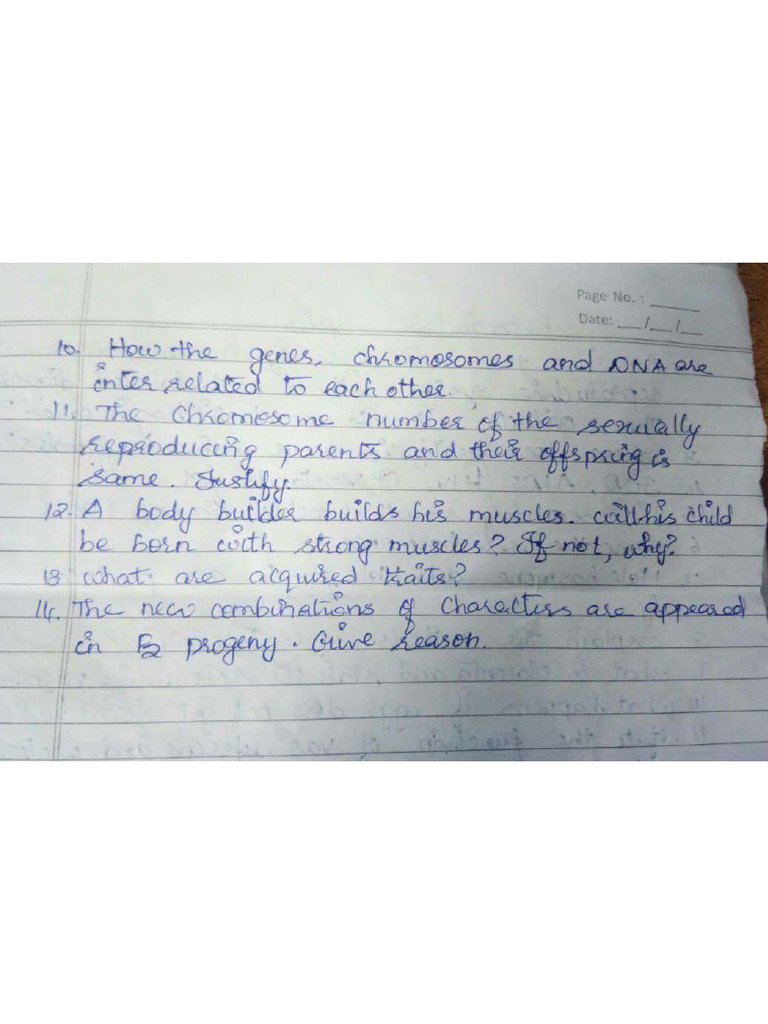 Page No. :
Date: __/__/__
10. How the genes, chromosomes and DNA are
inter related to each other.
11. The Chromosome number of the sexually
reproducing parents and their offspring is
same. Justify.
12. A body builder builds his muscles. will his child
be born with strong muscles? If not, why?
13 what are acquired traits?
14. The new combinations of Characters are appeared
in F2 progeny. Give reason.